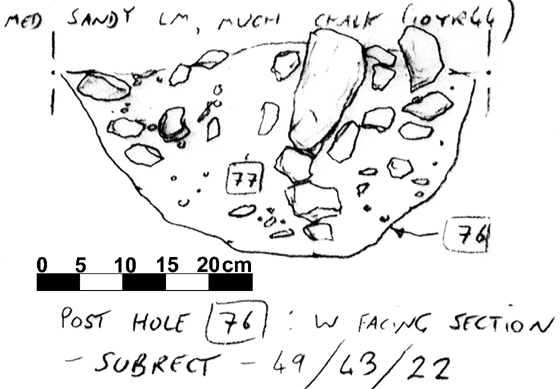 MED SANDY LM, MUCH CHALK (10YR44)
77
76
0 5 10 15 20cm
POST HOLE 76 : W FACING SECTION
- SUBRECT - 49/43/22